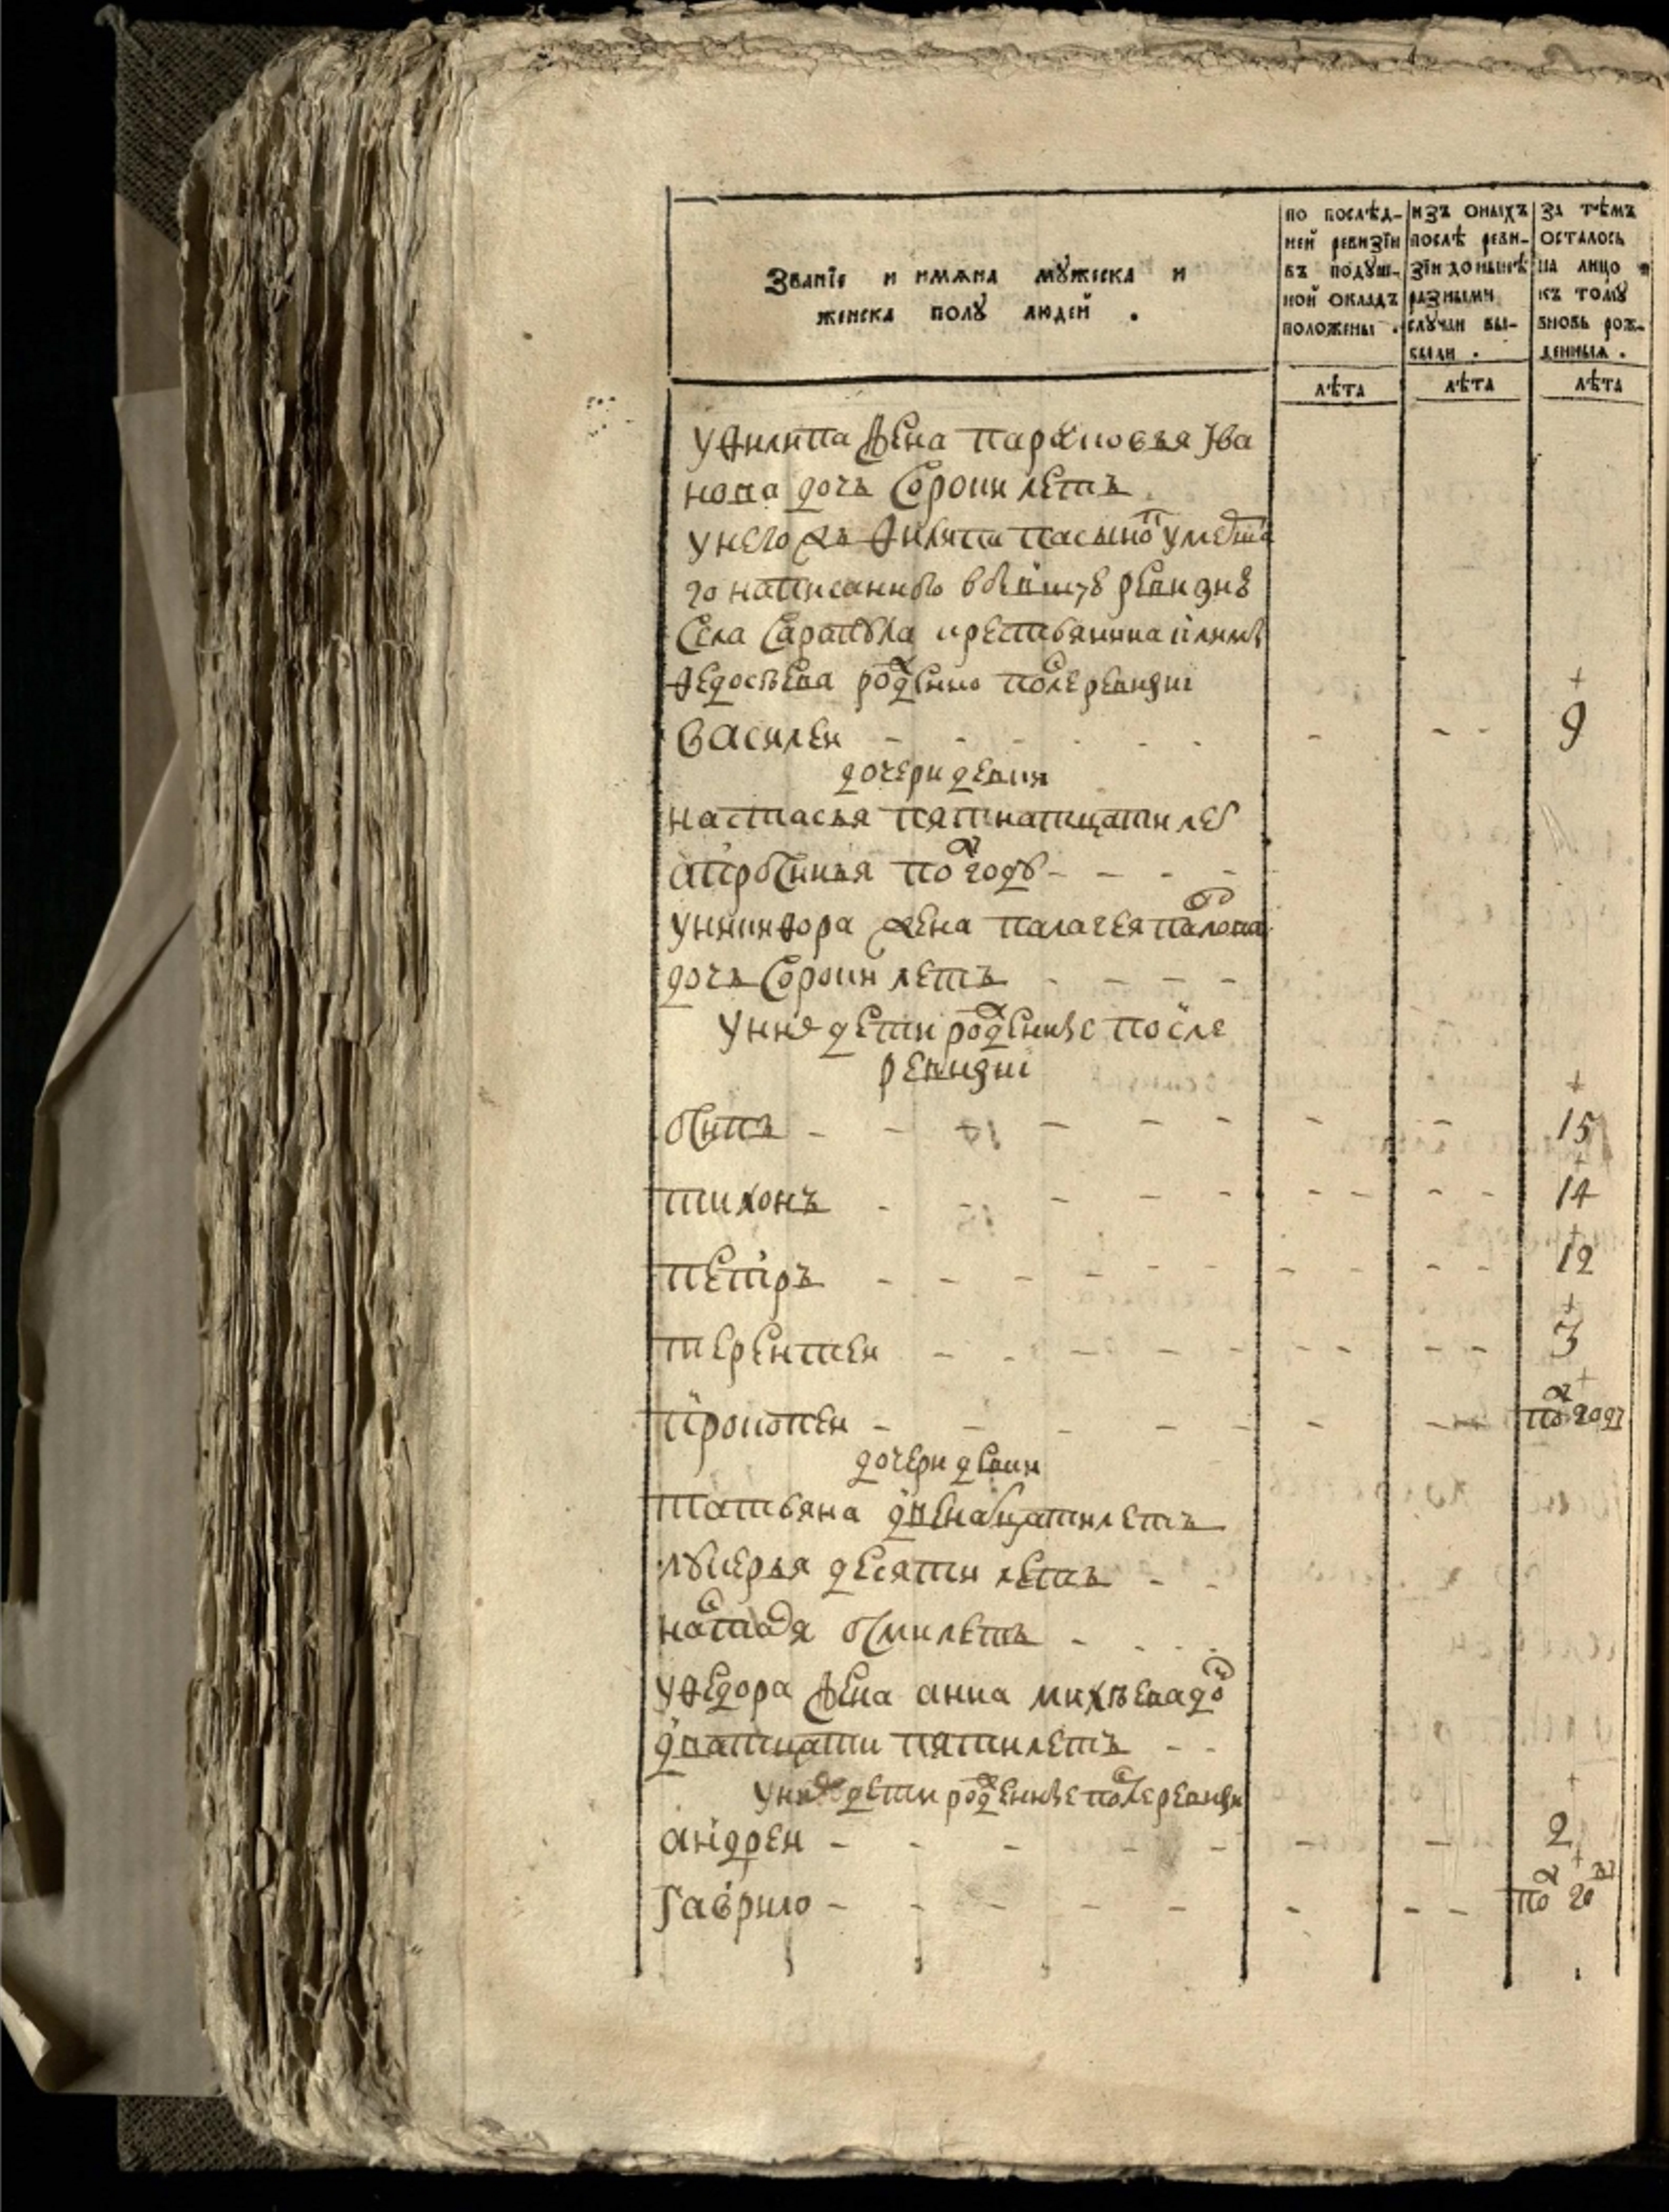 Званїе и имѧна мꙋжеска и
женска полꙋ людей .
по послѣд-
ней ревизїи
въ подꙋш-
ной окладъ
положены .
изъ оныхъ
послѣ реви-
зїи до нынѣ
разными
слꙋчаи вы-
были .
за тѣмъ
осталось
на лицо и
къ томꙋ
вновь рож-
денныѧ .
лѣта
лѣта
лѣта
уѳилипа жена парасковья Ива
нова дочь сороки летъ
унего жъ Филипа пасынокъ умершa
го написаннаго в бывшую ревизию
села крестьянина
Федосѣева рожденно после ревизиї
василеи - - - - - - 9
дочери девки
настасья пятнатцати лет
апросинья по году - - - -
уникифора жена палагея павлова
дочь сороки летъ - - - -
унихъ дети рожденные после
ревизиї
осипъ - - - - - 15
тихонъ - - - - - 14
петръ - - - - - 12
терентеи - - - - - 3
прокопеи - - - - - полгоду
дочери девки
татьяна двенатцати летъ
лукерья десяти летъ - -
настасья осми летъ - -
уѳедора жена анна михѣева дочь
дватцати пяти летъ - -
унихъ дети рожденные после ревизи
андреи - - - - - 2
Гаврило - - - - - полгоду